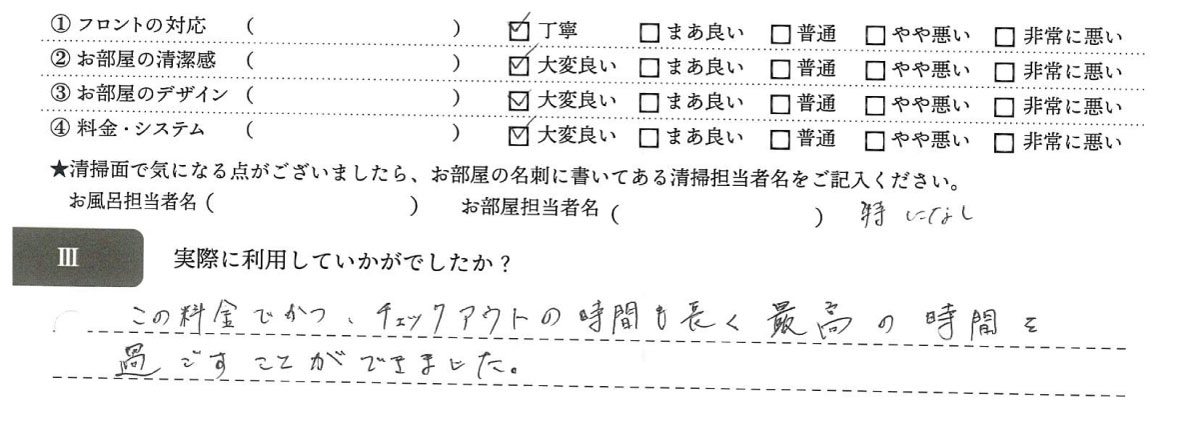 ① フロントの対応 ( ) ☑ 丁寧 □ まあ良い □ 普通 □ やや悪い □ 非常に悪い
② お部屋の清潔感 ( ) ☑ 大変良い □ まあ良い □ 普通 □ やや悪い □ 非常に悪い
③ お部屋のデザイン ( ) ☑ 大変良い □ まあ良い □ 普通 □ やや悪い □ 非常に悪い
④ 料金・システム ( ) ☑ 大変良い □ まあ良い □ 普通 □ やや悪い □ 非常に悪い
★清掃面で気になる点がございましたら、お部屋の名刺に書いてある清掃担当者名をご記入ください。
お風呂担当者名 ( ) お部屋担当者名 ( ) 特になし
Ⅲ 実際に利用していかがでしたか？
この料金でかつ、チェックアウトの時間も長く最高の時間を
過ごすことができました。